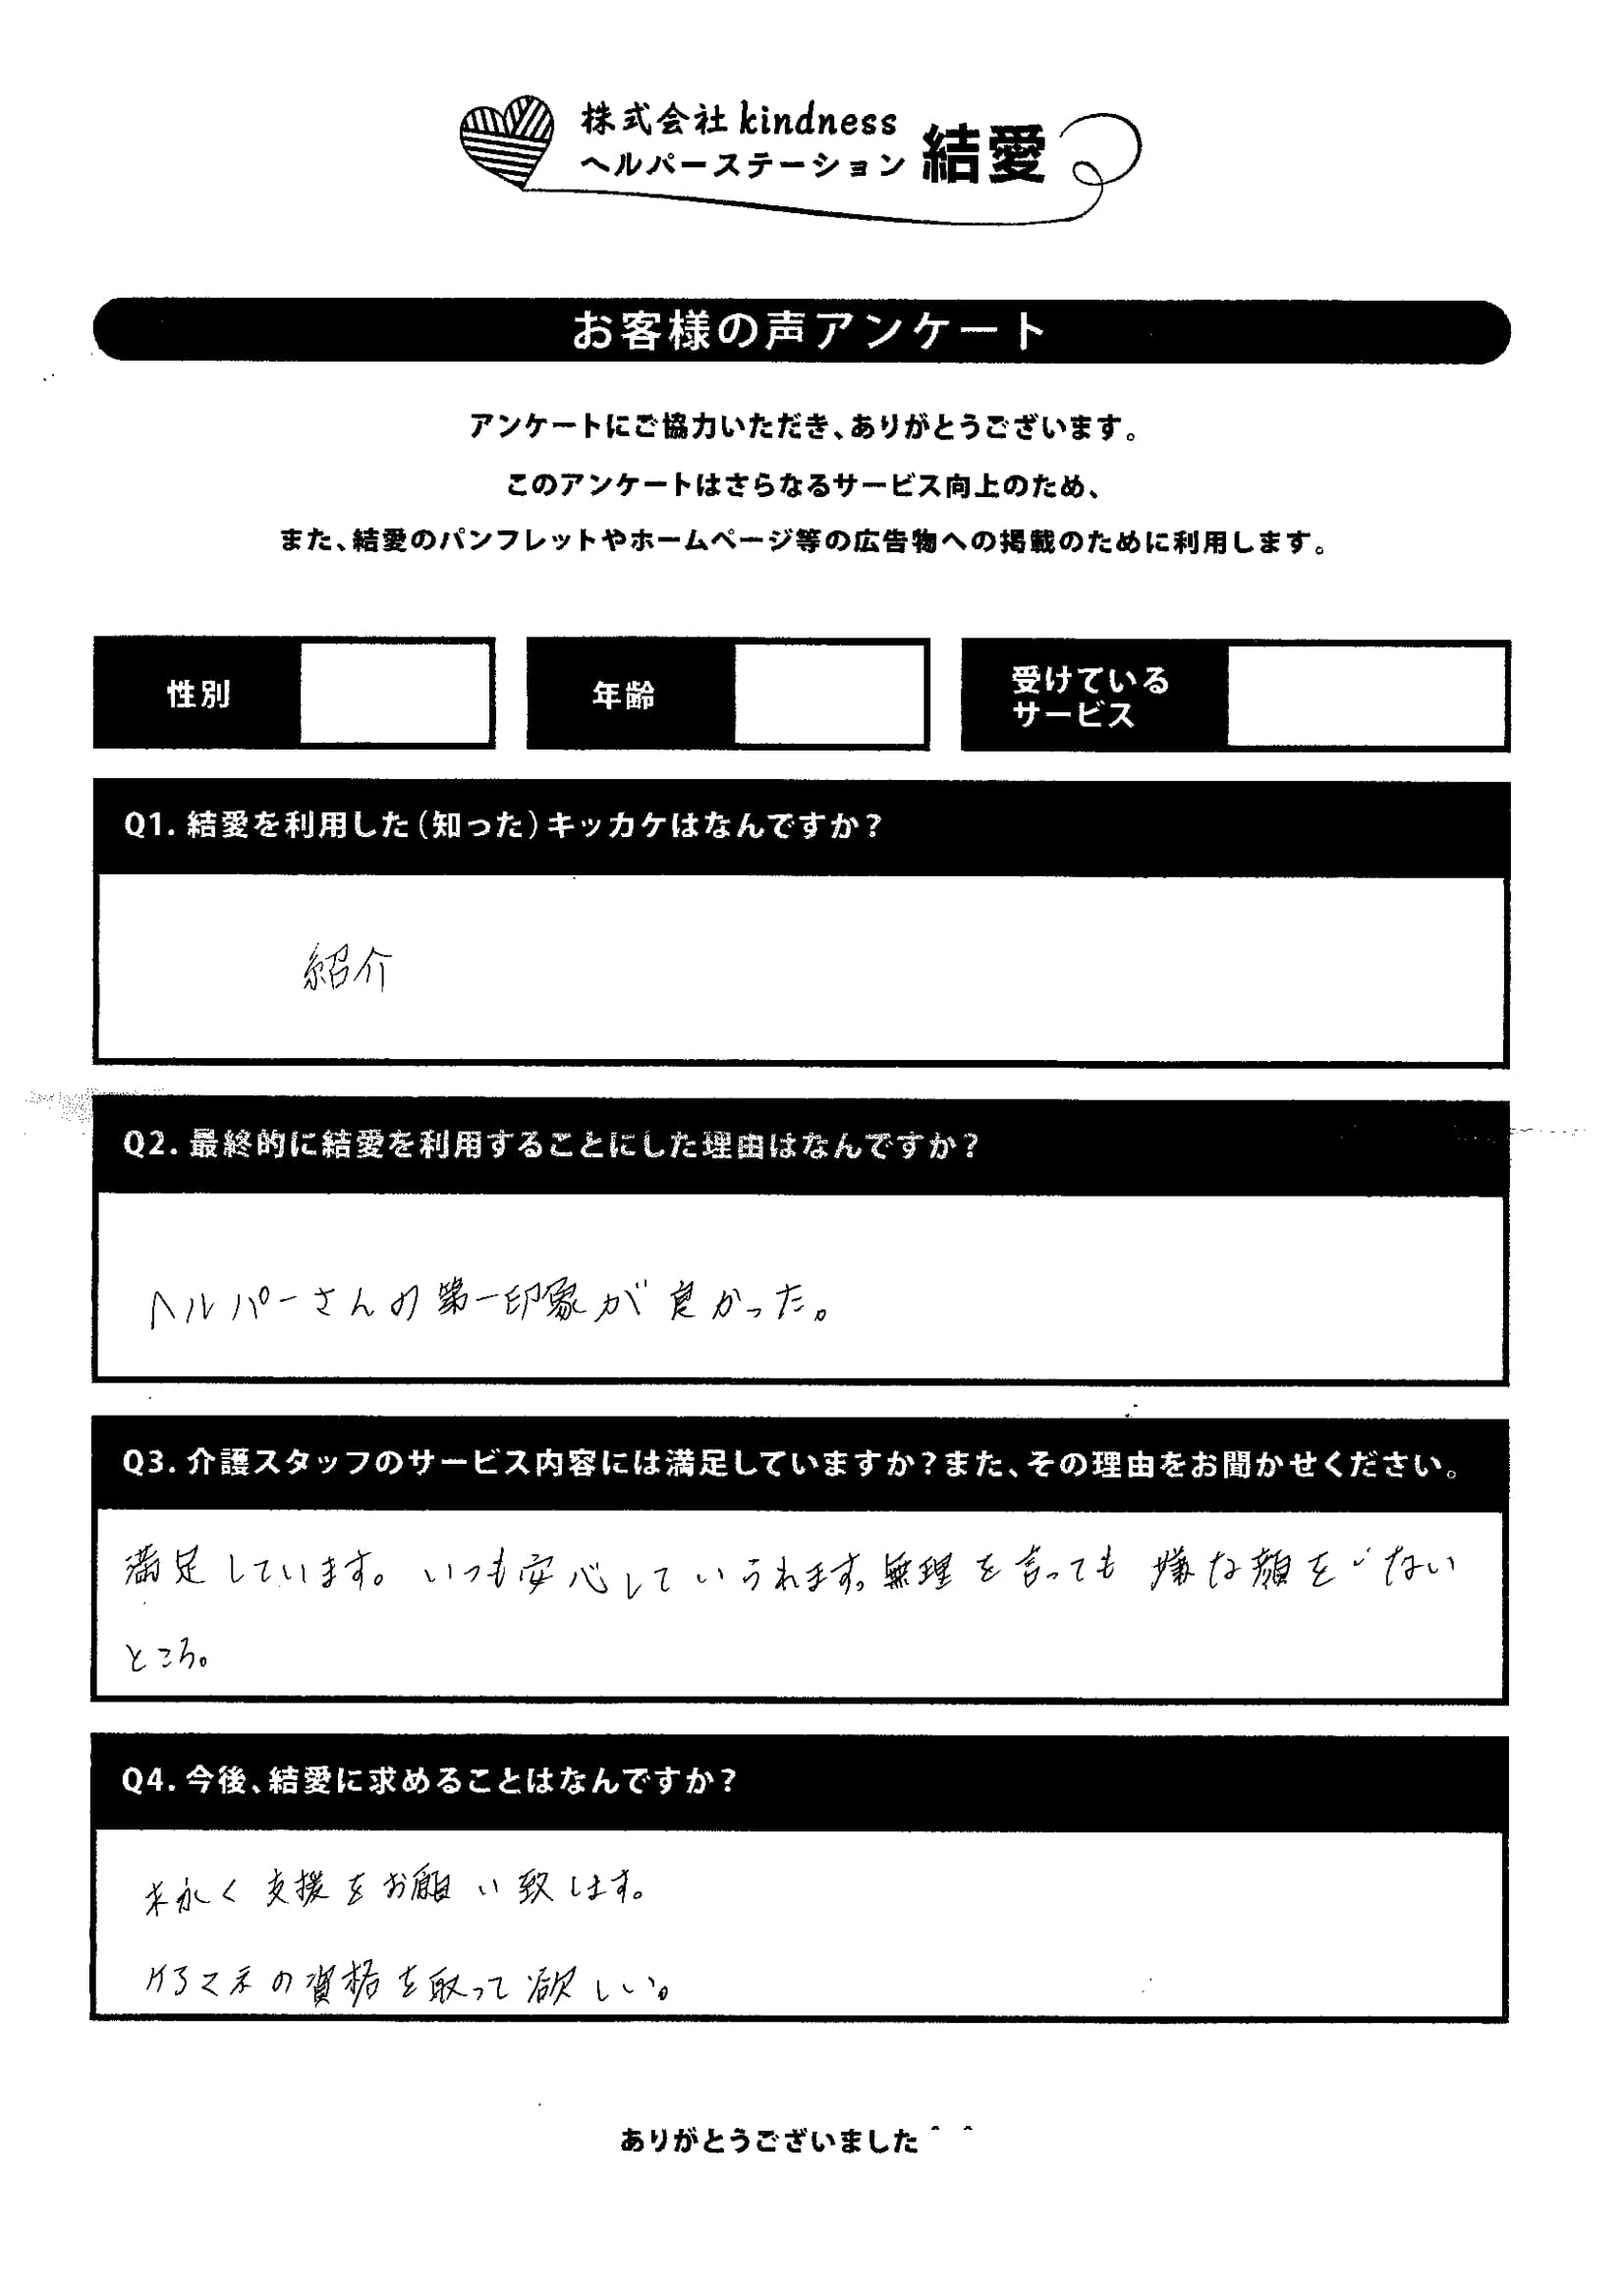 株式会社 kindness
ヘルパーステーション 結愛
お客様の声アンケート
アンケートにご協力いただき、ありがとうございます。
このアンケートはさらなるサービス向上のため、
また、結愛のパンフレットやホームページ等の広告物への掲載のために利用します。
性別
年齢
受けている
サービス
Q1. 結愛を利用した(知った)キッカケはなんですか?
紹介
Q2. 最終的に結愛を利用することにした理由はなんですか?
ヘルパーさんの第一印象が良かった。
Q3. 介護スタッフのサービス内容には満足していますか?また、その理由をお聞かせください。
満足しています。いつも安心していられます。無理を言っても嫌な顔をしない
ところ。
Q4. 今後、結愛に求めることはなんですか?
末永く支援をお願い致します。
ケアマネの資格を取って欲しい。
ありがとうございました^ ^